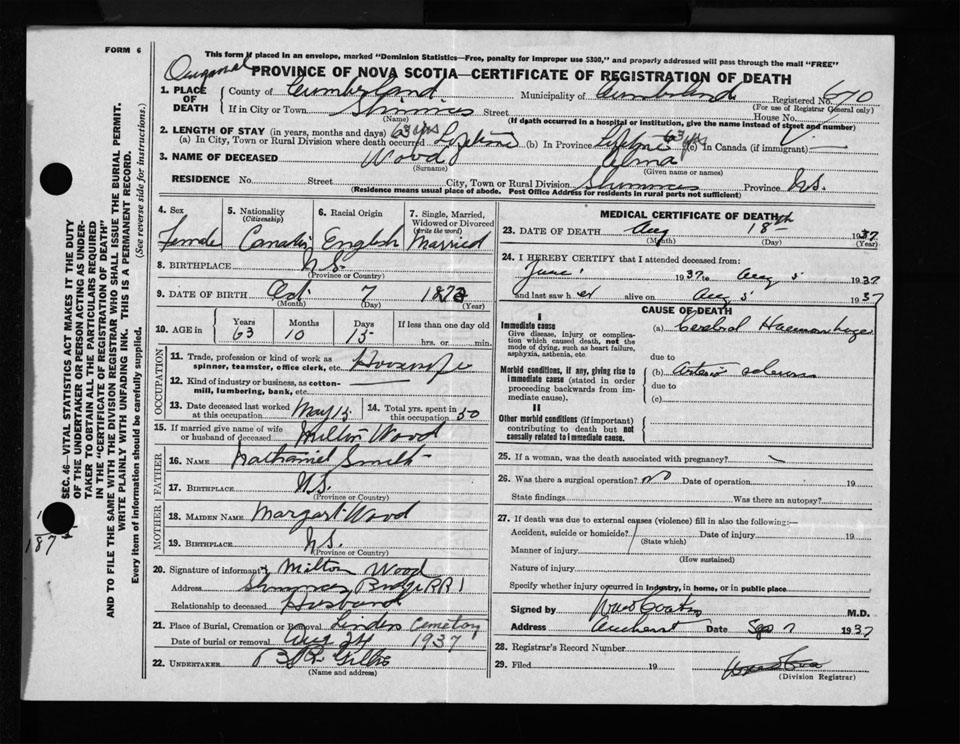 FORM 6
This form if placed in an envelope, marked "Dominion Statistics—Free, penalty for improper use $300," and properly addressed will pass through the mail "FREE"
PROVINCE OF NOVA SCOTIA—CERTIFICATE OF REGISTRATION OF DEATH
1. PLACE OF DEATH County of Cumberland Municipality of Cumberland Registered No. 670
(For use of Registrar General only)
If in City or Town Street House No.
(Name) (If death occurred in a hospital or institution, give the name instead of street and number)
2. LENGTH OF STAY (in years, months and days) 63 yrs 63 yrs
(a) In City, Town or Rural Division where death occurred Lifetime (b) In Province Lifetime (c) In Canada (if immigrant)
3. NAME OF DECEASED Wood Alma
(Surname) (Given name or names)
RESIDENCE No. Street City, Town or Rural Division Province N.S.
(Residence means usual place of abode. Post Office Address for residents in rural parts not sufficient)
SEC. 46—VITAL STATISTICS ACT MAKES IT THE DUTY
OF THE UNDERTAKER OR PERSON ACTING AS UNDER-
TAKER TO OBTAIN ALL THE PARTICULARS REQUIRED
IN THE "CERTIFICATE OF REGISTRATION OF DEATH"
AND TO FILE THE SAME WITH THE DIVISION REGISTRAR WHO SHALL ISSUE THE BURIAL PERMIT.
WRITE PLAINLY WITH UNFADING INK. THIS IS A PERMANENT RECORD.
Every item of information should be carefully supplied. (See reverse side for instructions.)
4. Sex 5. Nationality (Citizenship) 6. Racial Origin 7. Single, Married, Widowed or Divorced (write the word)
Female Canadian English Married
8. BIRTHPLACE N.S.
(Province or Country)
9. DATE OF BIRTH Oct 7 1873
(Month) (Day) (Year)
10. AGE in Years Months Days If less than one day old
63 10 15 hrs. or min.
OCCUPATION
11. Trade, profession or kind of work as spinner, teamster, office clerk, etc. Housewife
12. Kind of industry or business, as cotton-mill, lumbering, bank, etc.
13. Date deceased last worked at this occupation May 15 14. Total yrs. spent in this occupation 50
15. If married give name of wife or husband of deceased Milton Wood
FATHER
16. NAME Nathaniel Smith
17. BIRTHPLACE N.S.
(Province or Country)
MOTHER
18. MAIDEN NAME Margart Wood
19. BIRTHPLACE N.S.
(Province or Country)
20. Signature of informant Milton Wood
Address Bridge RR 1
Relationship to deceased Husband
21. Place of Burial, Cremation or Removal Linden Cemetory
Date of burial or removal Aug 24 1937
22. UNDERTAKER
(Name and address)
MEDICAL CERTIFICATE OF DEATH
23. DATE OF DEATH Aug 18th 1937
(Month) (Day) (Year)
24. I HEREBY CERTIFY that I attended deceased from:
June 1 1937 to Aug 5 1937
and last saw her alive on Aug 5 1937
CAUSE OF DEATH
I
Immediate cause (a) Cerebral Haemorrhage
Give disease, injury or complication which caused death, not the mode of dying, such as heart failure, asphyxia, asthenia, etc.
due to
Morbid conditions, if any, giving rise to immediate cause (stated in order proceeding backwards from immediate cause). (b) Arterio sclerosis
due to
(c)
II
Other morbid conditions (if important) contributing to death but not causally related to immediate cause.
25. If a woman, was the death associated with pregnancy?
26. Was there a surgical operation? No Date of operation 19
State findings Was there an autopsy?
27. If death was due to external causes (violence) fill in also the following:—
Accident, suicide or homicide? Date of injury 19
(State which)
Manner of injury
(How sustained)
Nature of injury
Specify whether injury occurred in industry, in home, or in public place
Signed by M.D.
Address Amherst Date Sep 7 1937
28. Registrar's Record Number
29. Filed 19
(Division Registrar)